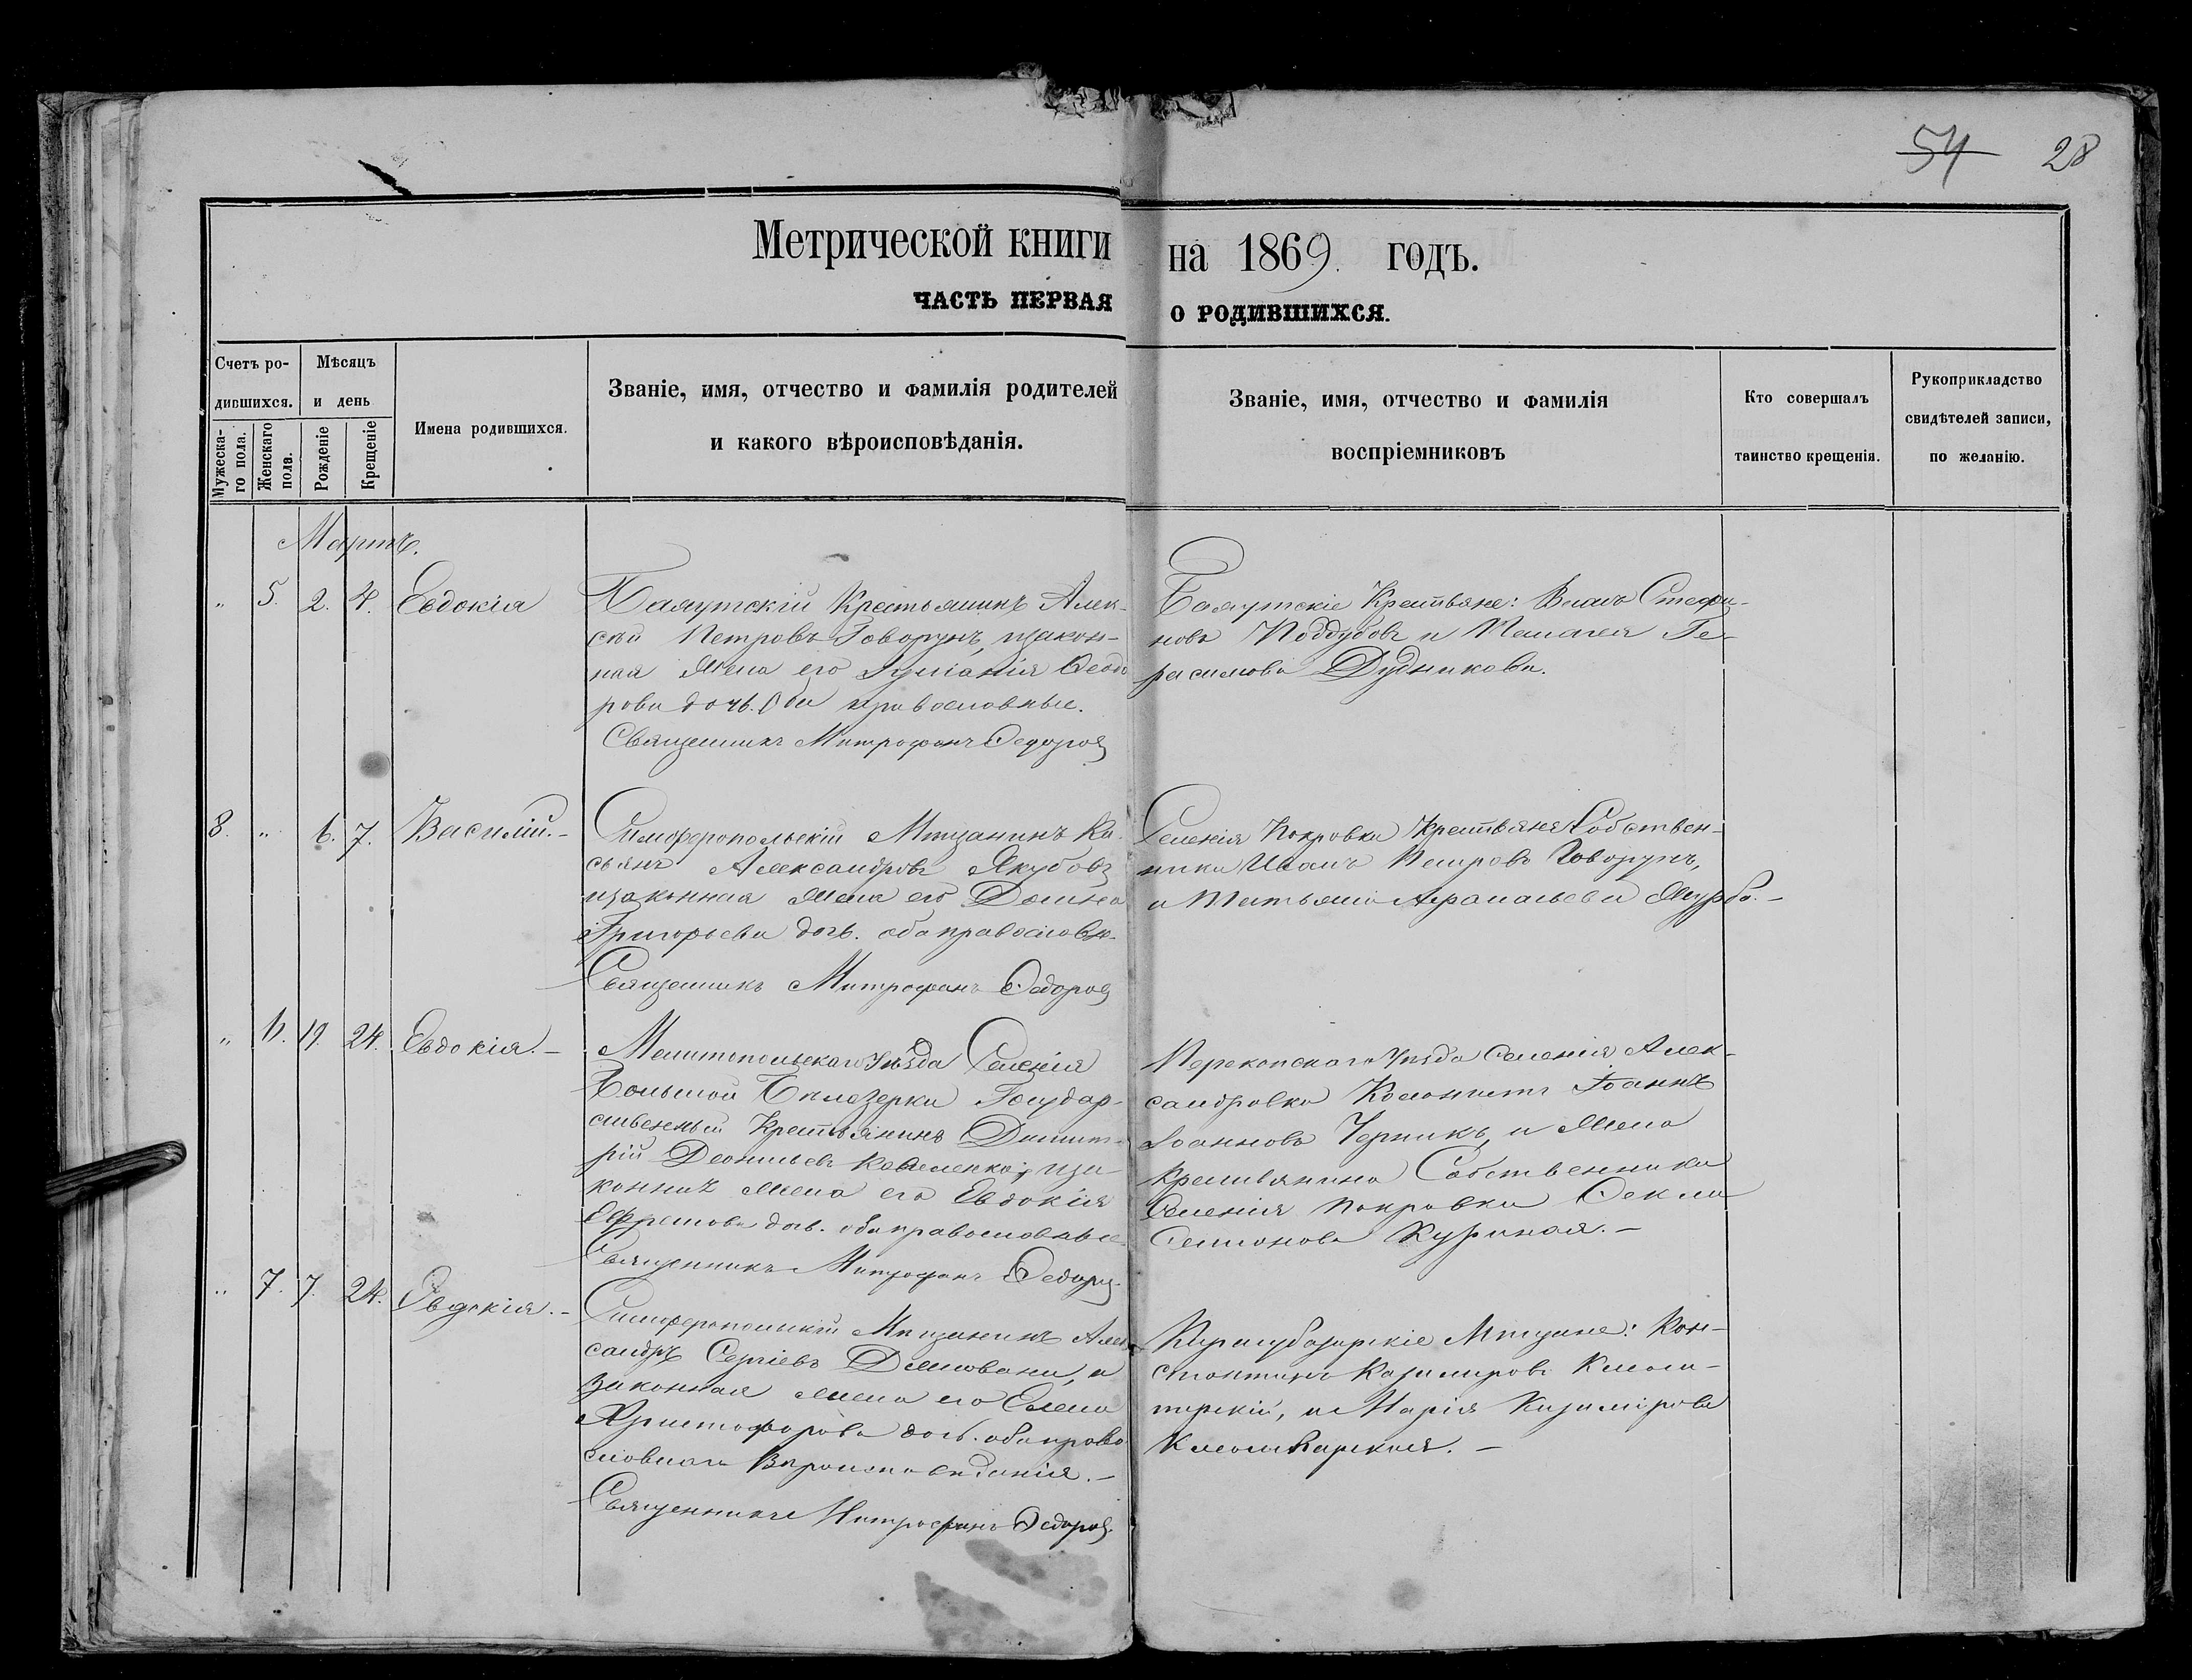 54 28
Метрической книги на 1869. годъ.
ЧАСТЬ ПЕРВАЯ О РОДИВШИХСЯ.
Счетъ ро-
дившихся.
Мужеска-
го пола.
Женскаго
пола.
Мѣсяцъ
и день
Рожденіе
Крещеніе
Имена родившихся.
Званіе, имя, отчество и фамилія родителей
и какого вѣроисповѣданія.
Званіе, имя, отчество и фамилія
воспріемниковъ
Кто совершалъ
таинство крещенія.
Рукоприкладство
свидѣтелей записи,
по желанію.
Мартъ.
" 5. 2. 4. Евдокія
Крестьянинъ Алек-
сѣй Петровъ Говорунъ, изакон-
ная Жена его Ѳеодо
рова дочь. Оба православные.
Священникъ Митрофанъ Ѳедоровъ
Крестьяне: Стефа-
новъ Поддубовъ и Пелагея Ге-
расимова Дудникова.
8. " 6. 7. Василій.-
Симферопольскій Мѣщанинъ Ка-
сьянъ Александровъ Якубовъ
изаконная Жена его Домна
Григорьева дочь. оба православн.
Священникъ Митрофанъ Ѳедоровъ
Селенія Покровки Крестьяне Собствен-
ники Иванъ Петровъ Говорунъ,
и Татьяна Афанасьева -
" 6. 24. Евдокія.-
Мелитопольскаго Уѣзда Селенія
Большой Бѣлозерки Государ-
ственный Крестьянинъ Димит-
рій Коваленко, иза-
конная Жена его Евдокія
Ефремова доч. оба православные
Священникъ Митрофанъ Ѳедоровъ
Перекопскаго Уѣзда Селенія Алек-
сандровки Колонистъ Іоаннъ
Іоанновъ Черникъ, и Жена
Крестьянина Собственника
Селенія Покровки Ѳекла
Семіонова Куриная.-
" 7. 7. 24. Евдокія.-
Симферопольскій Мѣщанинъ Алек
сандръ Сергіевъ и
законная Жена его Елена
Христофорова дочь. оба право
славнаго Вѣроисповѣданія.-
Священникъ Митрофанъ Ѳедоровъ.
Карасубазарскіе Мѣщане: Кон-
стантинъ Казимировъ
и Марія Казимірова